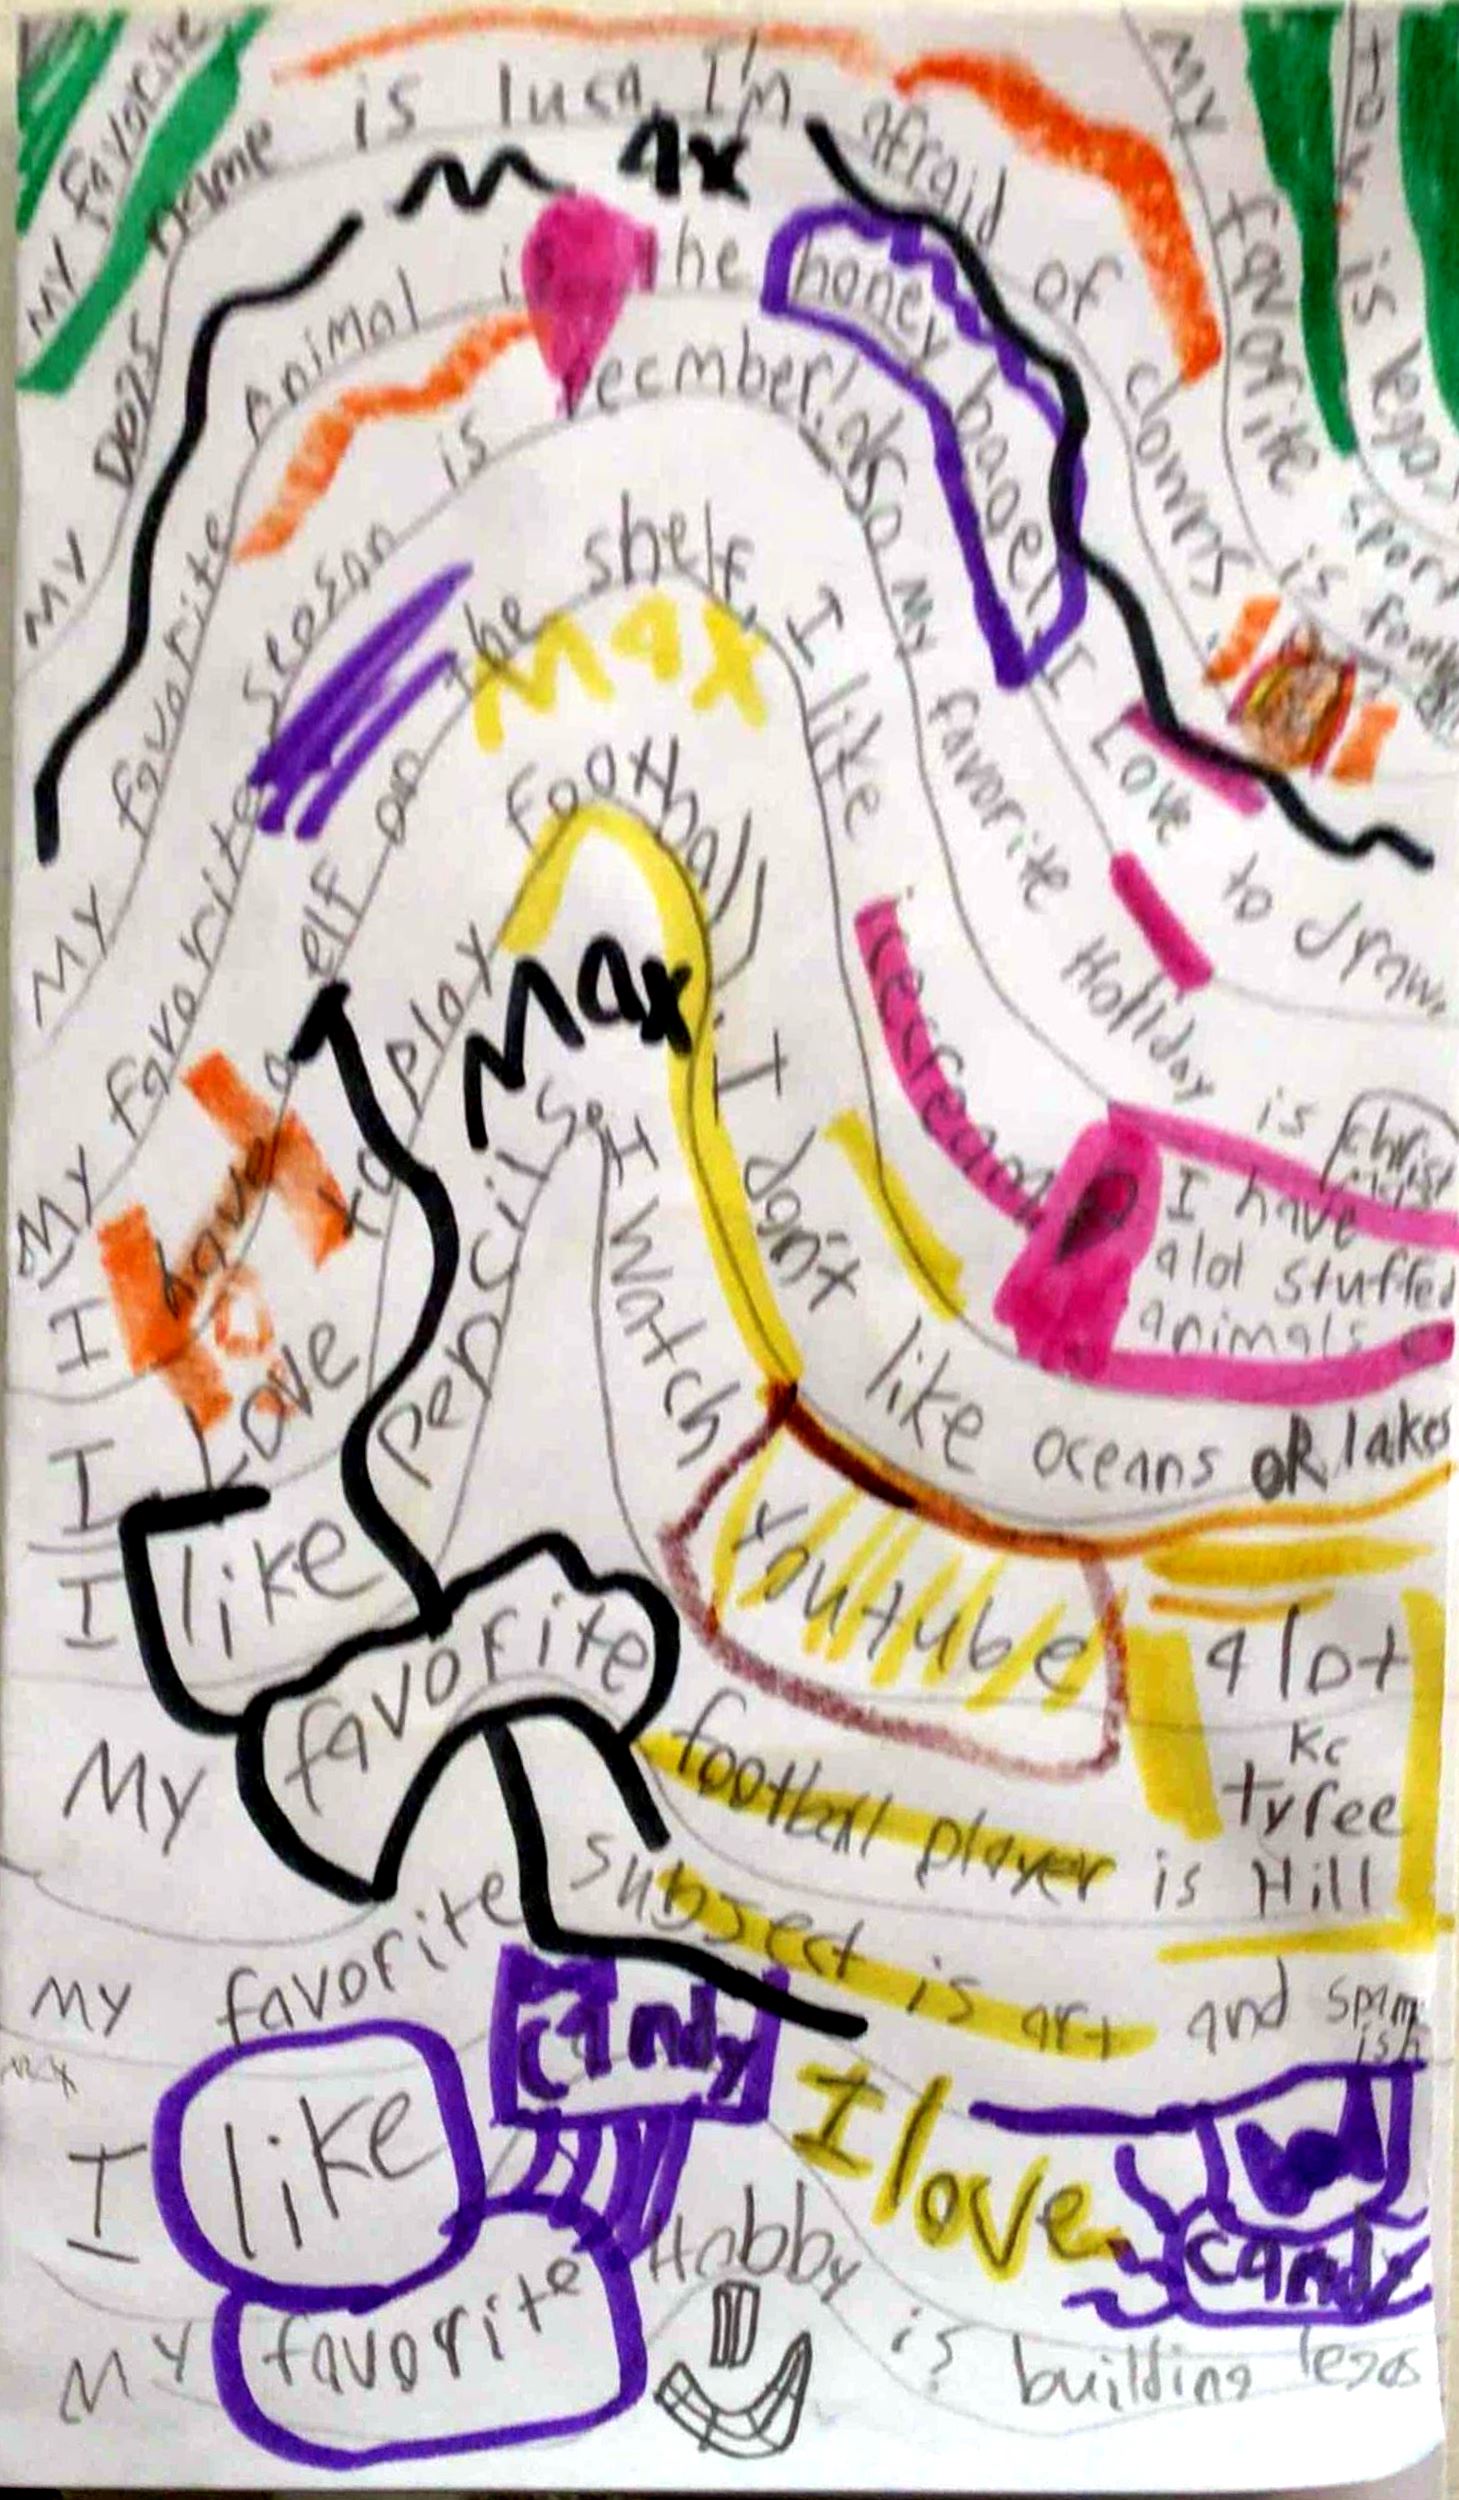 My favorite
TOY is legos
My favorite sport
is
My Dogs name is lusa, I'm afraid of clowns
Max
My favorite Animal is the honey bager I Love to draw.
My favorite Seosnn is Decmber! also my favorite Holiday is christmas
I have a elf on the shelf, I like icecream
I have alot stuffed animals
Max
I Love to play football. I don't like oceans oR lakes
Max
I like pencils. I watch Youtube alot
My favorite football player is Kc tyree Hill
My favorite subsect is art and spanish
I like candy I love candy
My favorite Hobby is building legos